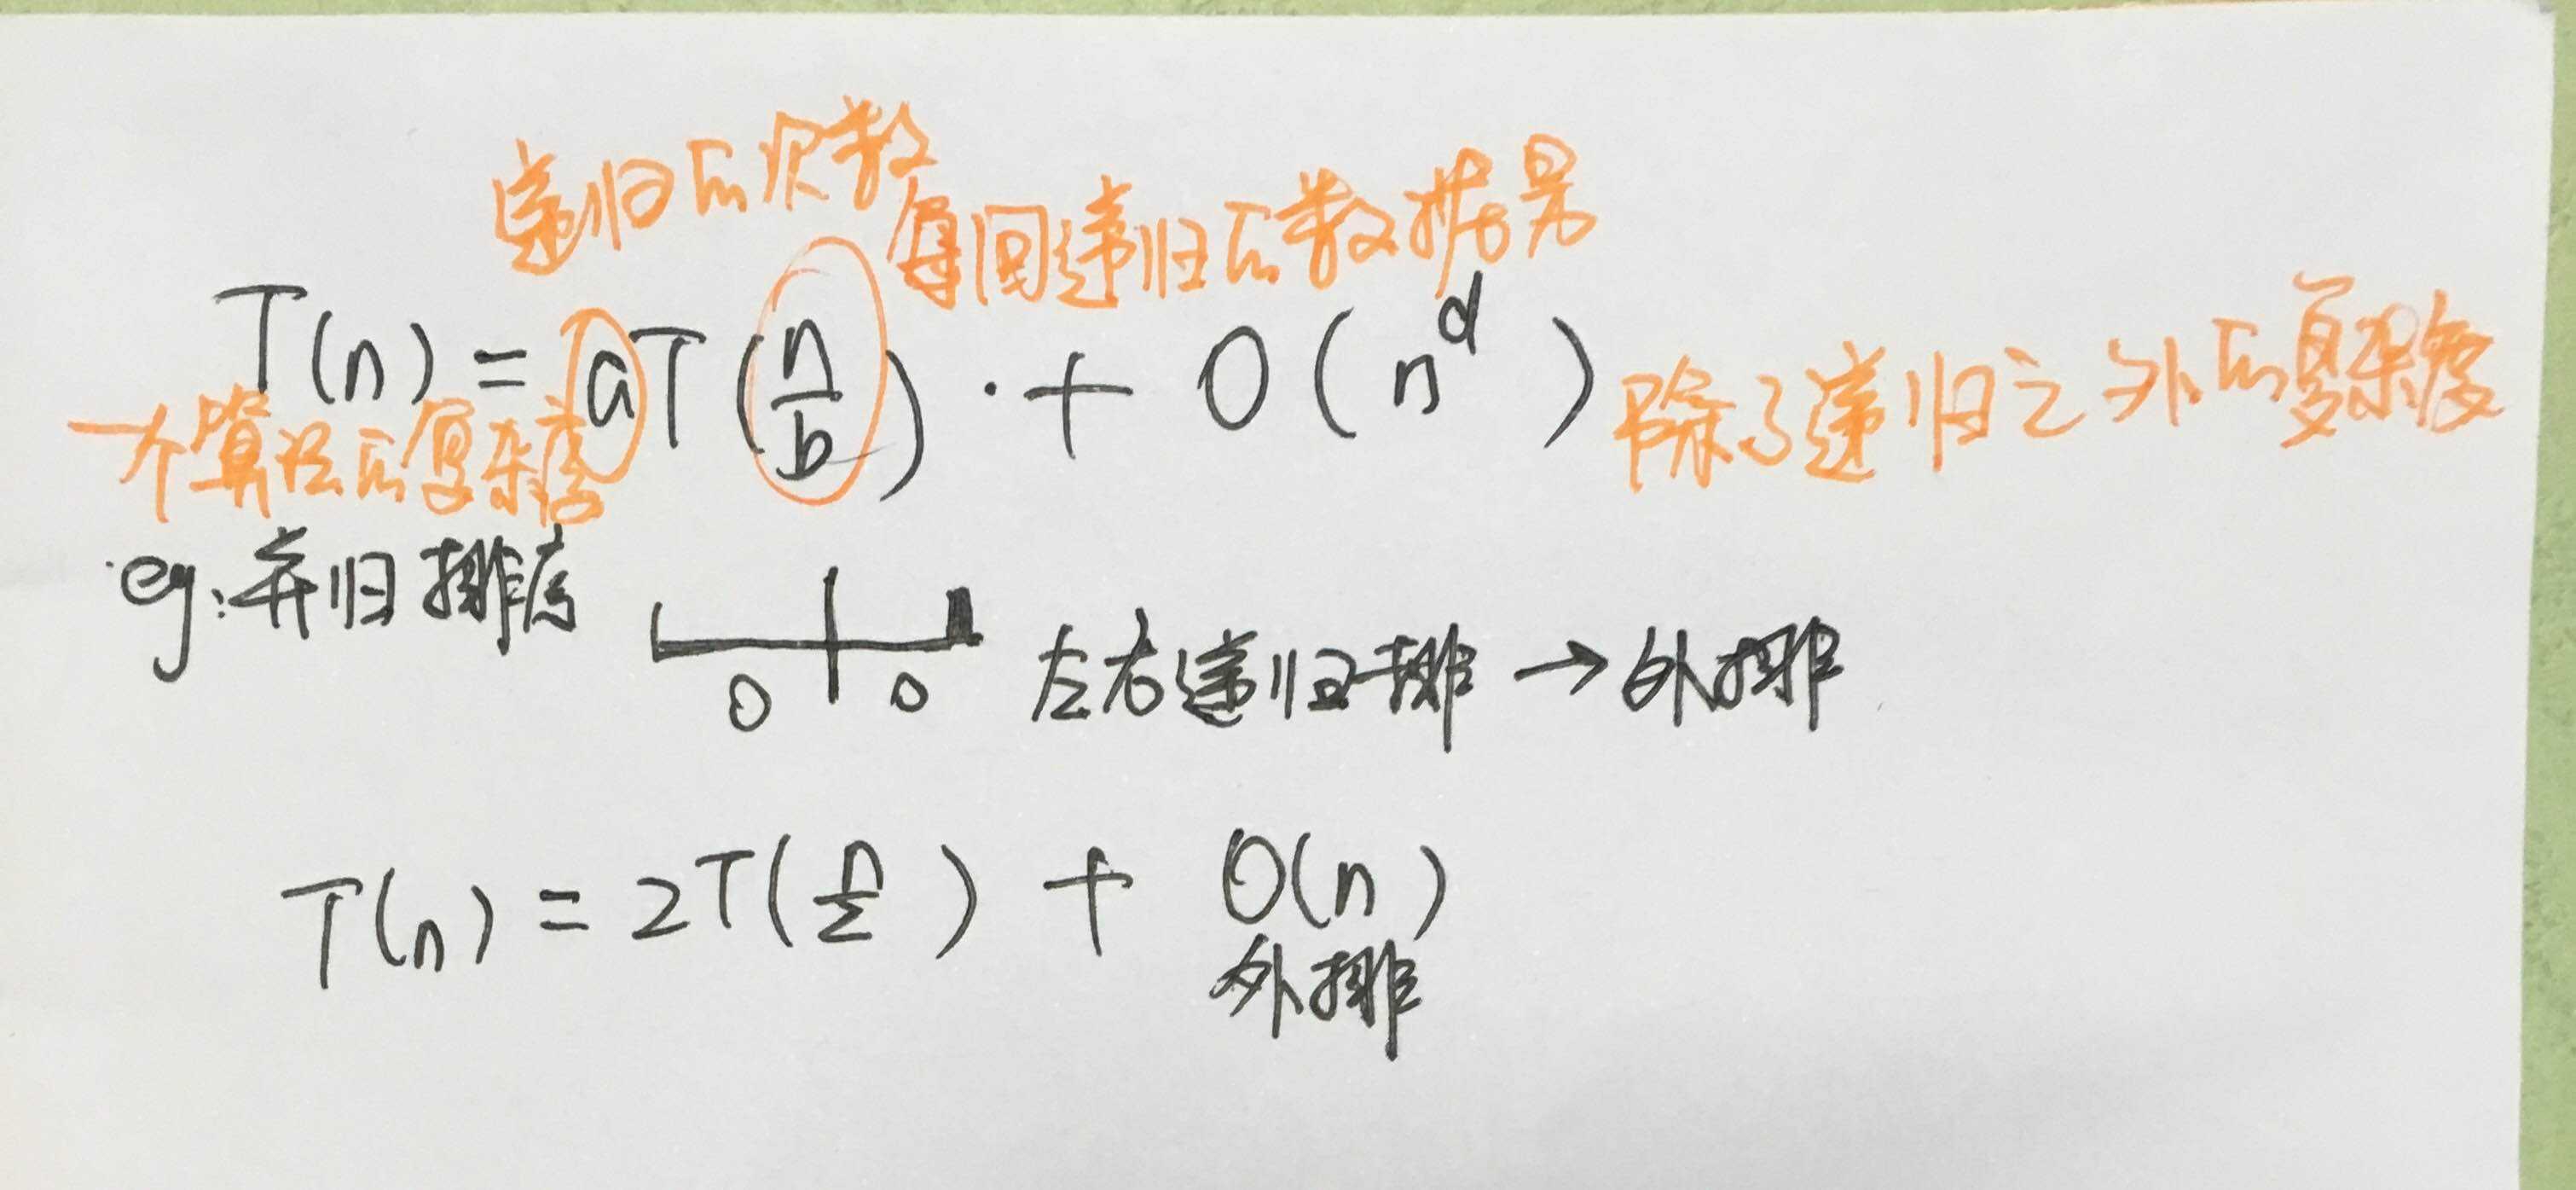 递归的次数
每回递归的数据量
T(n) = aT(n/b) · + O(n^d)
除了递归之外的复杂度
一个算法的复杂度
eg: 并归排序
0 0 左右递归排 → 外排
T(n) = 2T(n/2) + O(n)
外排